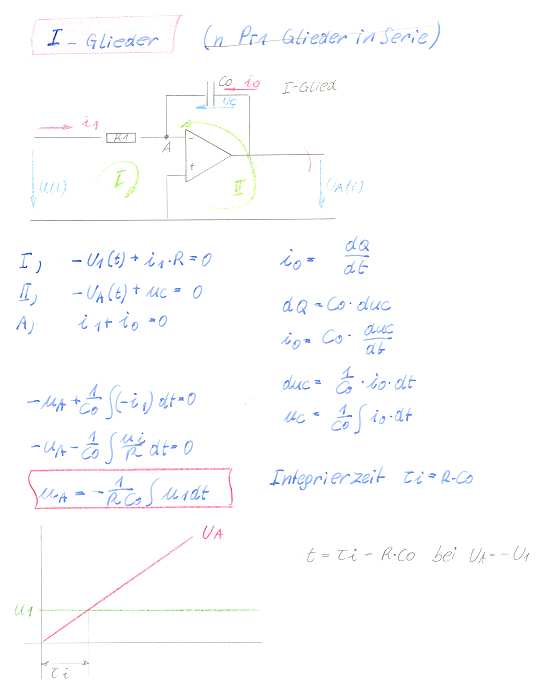 I - Glieder (n PT1 Glieder in Serie)
C0 i0 I-Glied
uc
i1
R1
A
-
+
I
II
U1(t)
UA(t)
I, -U1(t) + i1·R = 0
II, -UA(t) + uc = 0
A, i1 + i0 = 0
i0 = dQ/dt
dQ = C0 · duc
i0 = C0 · duc/dt
duc = 1/C0 · i0 · dt
uc = 1/C0 ∫ i0 · dt
-uA + 1/C0 ∫(-i1) dt = 0
-uA - 1/C0 ∫ ui/R dt = 0
uA = - 1/RC0 ∫ u1 dt
Integrierzeit τi = R·C0
UA
t = τi - R·C0 bei UA = -U1
u1
τi